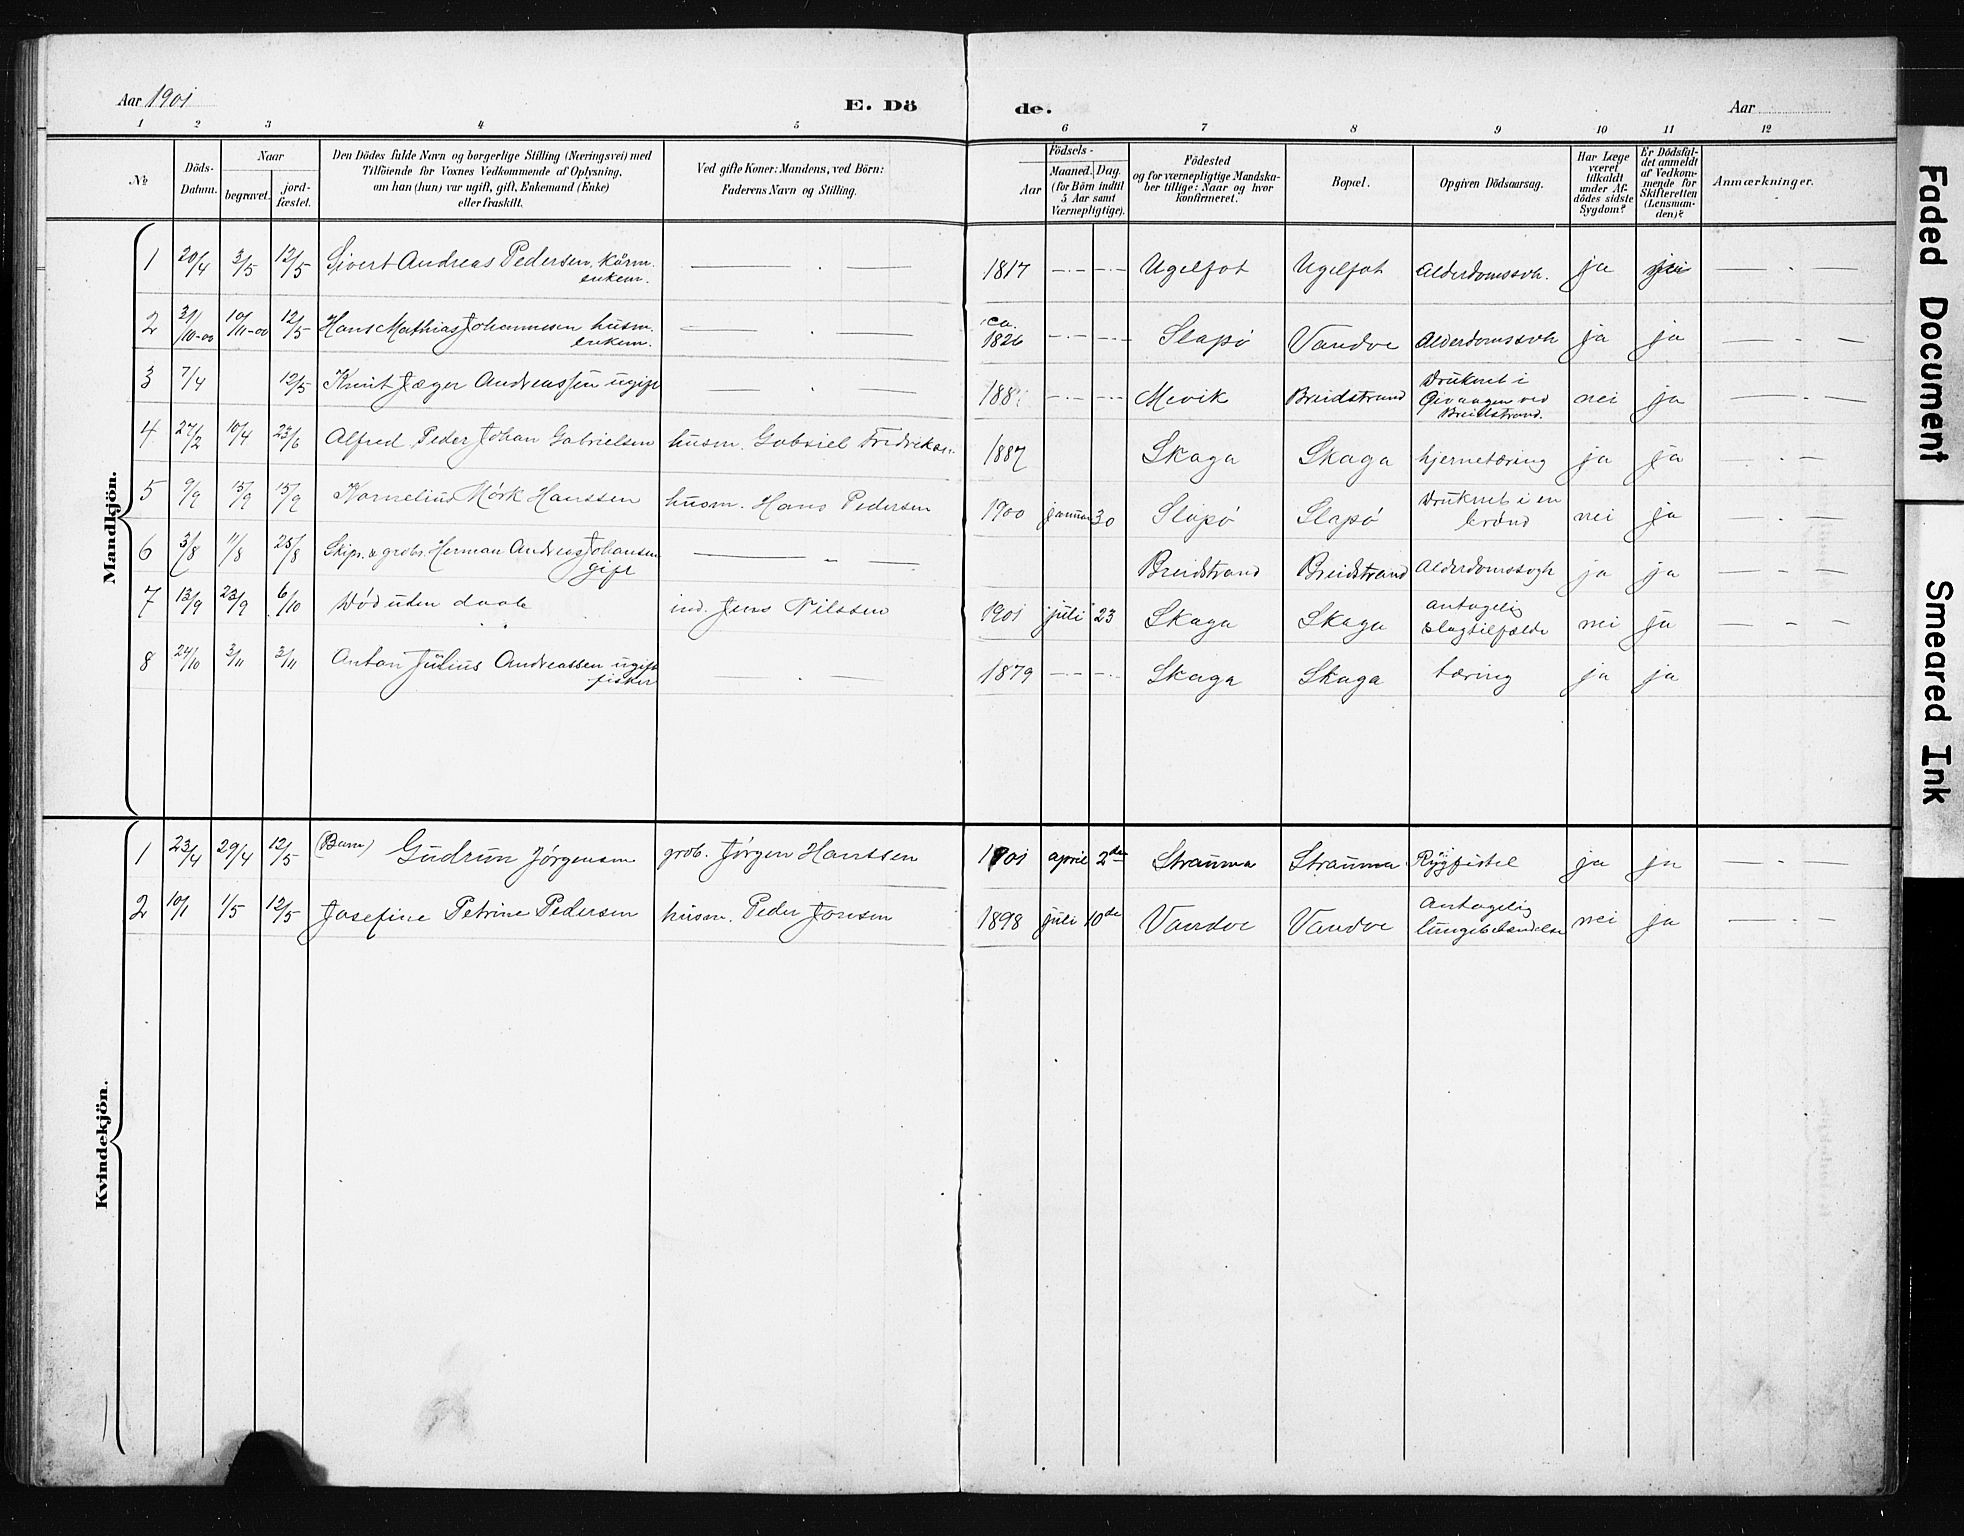 Aar 1901
E. Dö
de.
Aar
1 2 3 4 5 6 7 8 9 10 11 12
No
Döds-Datum.
Naar
begravet.
jord-fæstet.
Den Dödes fulde Navn og borgerlige Stilling (Næringsvei) med
Tilföiende for Voxnes Vedkommende af Oplysning,
om han (hun) var ugift, gift, Enkemand (Enke)
eller fraskilt.
Ved gifte Koner: Mandens, ved Börn:
Faderens Navn og Stilling.
Födsels-
Aar
Maaned. Dag.
(for Börn indtil
5 Aar samt
Værnepligtige).
Födested
og for værnepligtige Mandska-
ber tillige: Naar og hvor
konfirmeret.
Bopæl.
Opgiven Dödsaarsag.
Har Læge
været
tilkaldt
under Af-
dödes sidste
Sygdom?
Er Dödsfal-
det anmeldt
af Vedkom-
mende for
Skifteretten
(Lensman-
den)?
Anmærkninger.
Mandkjön.
1 20/4 3/5 12/5 Sivert Andreas Pedersen, enkem. 1817 Ugelfot Ugelfot Alderdomssvh. ja
2 31/10-00 10/11-00 12/5 Hans Mathias Johannesen husm. enkem. ca. 1826 Slapø Vandve Alderdomssvh ja ja
3 7/4 12/5 Knut Jæger Andreassen ugift Mevik Breidstrand Druknet i ved Breidstrand. nei ja
4 27/2 10/4 23/6 Alfred Peder Johan Gabrielsen husm. Gabriel Fredriksen 1887 Skaga Skaga hjernetæring ja ja
5 9/9 15/9 15/9 Kornelius Mørk Hanssen husm. Hans Pedersen 1900 januar 30 Slapø Slapø Druknet i en brønd nei ja
6 3/8 11/8 25/8 Skips. & grobr. Herman Andreas Johansen gift Breidstrand Breidstrand Alderdomssvgh ja ja
7 13/9 23/9 6/10 Død uden daab ind. Jens Nilssen 1901 juli 23 Skaga Skaga antagelig slagtilfælde nei ja
8 24/10 3/11 3/11 Anton Julius Andreassen ugift fisker 1879 Skaga Skaga tæring ja ja
Kvindekjön.
1 23/4 29/4 12/5 (Barn) Gudrun Jørgensen grob. Jørgen Hanssen 1901 april 2den Strauma Strauma Rygfistel ja ja
2 10/1 1/5 12/5 Josefine Petrine Pedersen husm. Peder Jonsen 1898 juli 10de Vandve Vandve Antagelig lungebetændelse nei ja
Faded Document
Smeared Ink